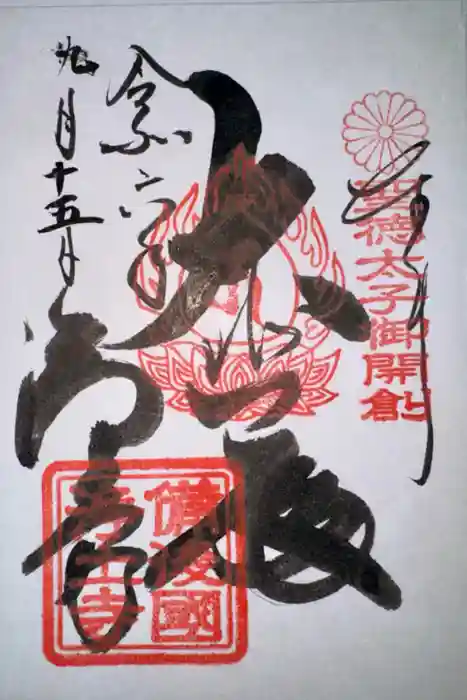 奉拝
聖徳太子御開創
大悲殿
備後國
浄土寺
令和六年
九月十五日